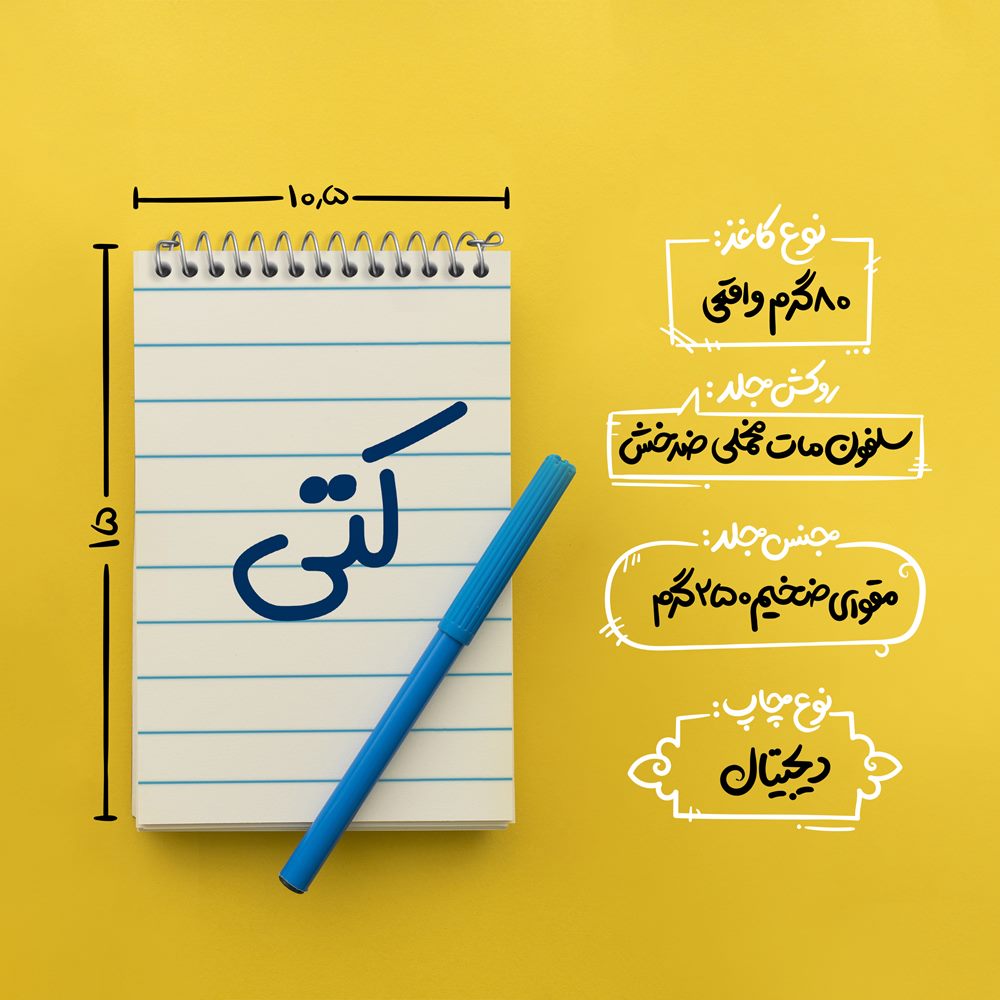 ۱۰,۵
۱۵
کتی
نوع کاغذ:
۸۰گرم واقعی
روکش جلد:
سلفون مات مخملی ضدخش
جنس جلد:
مقوای ضخیم ۲۵۰گرم
نوع چاپ:
دیجیتال